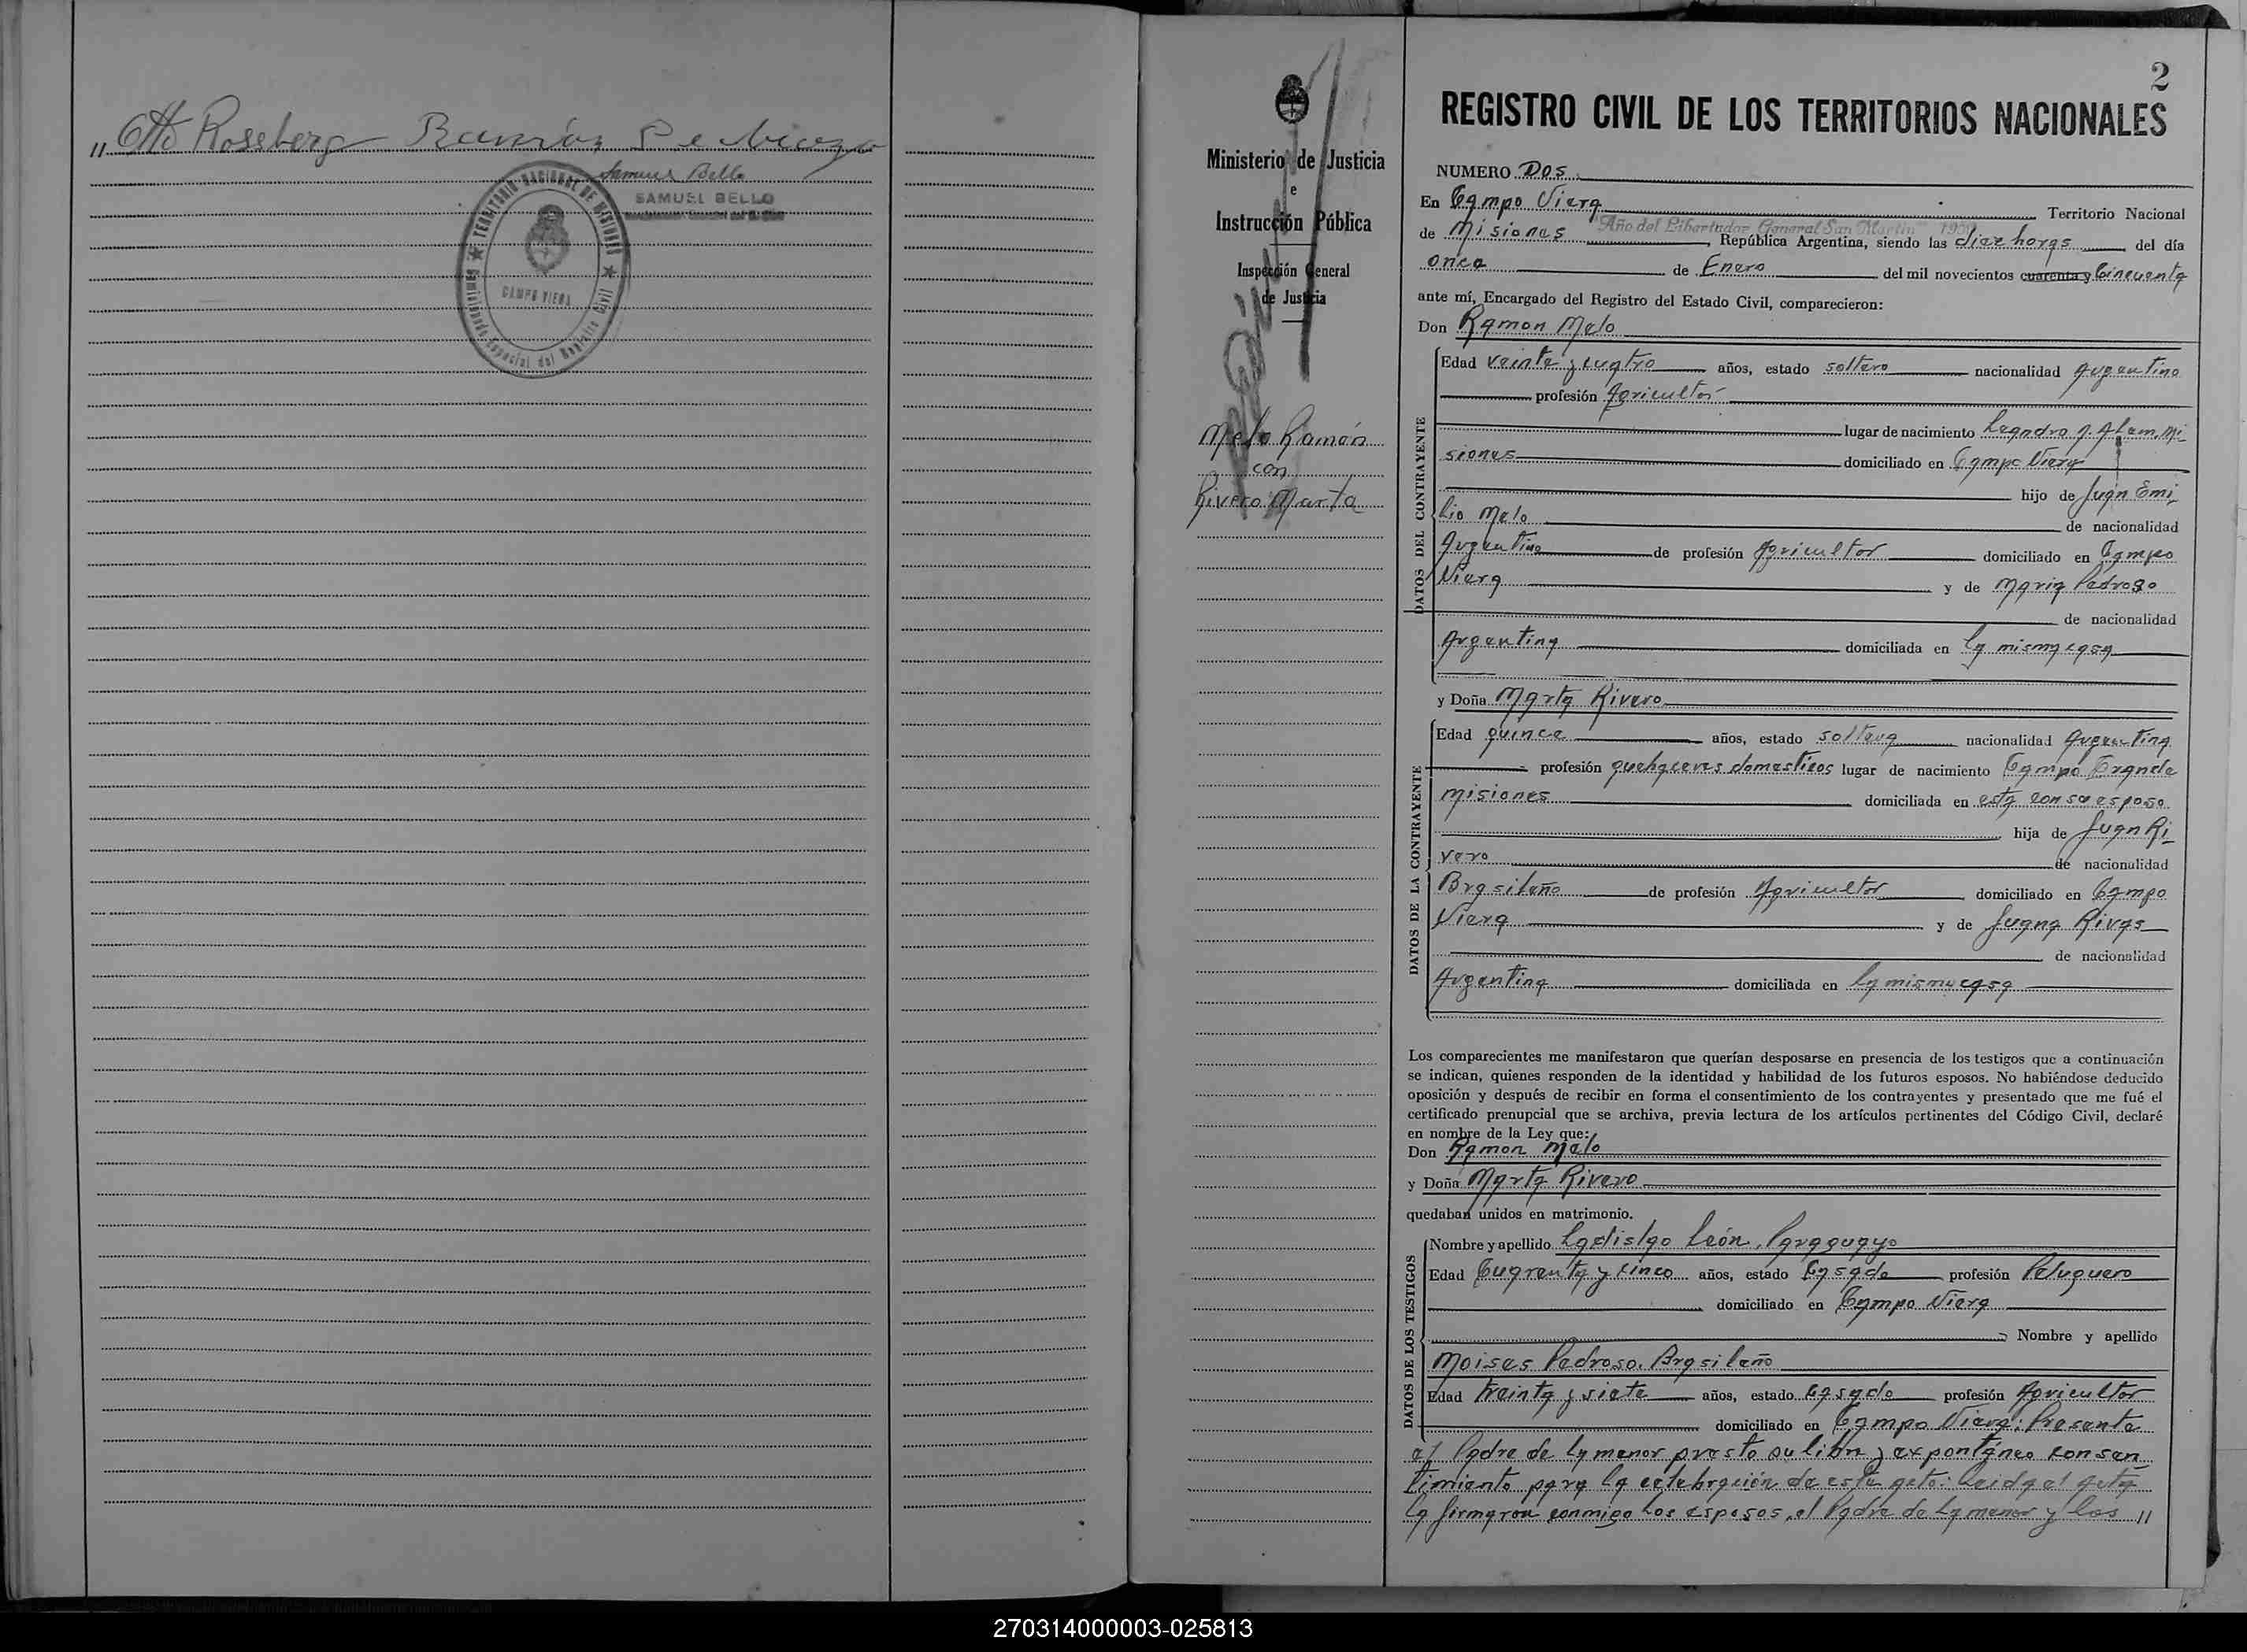 " Otto Roseberg Ramón
Samuel Bello
SAMUEL BELLO
TERRITORIO NACIONAL DE MISIONES
CAMPO VIERA
Especial del Registro Civil
2
REGISTRO CIVIL DE LOS TERRITORIOS NACIONALES
Ministerio de Justicia
e
Instrucción Pública
Inspección General
de Justicia
Melo Ramón
con
Rivero Marta
NUMERO Dos
En Campo Viera Territorio Nacional
"Año del Libertador General San Martin" 1950
de Misiones, República Argentina, siendo las diez horas del día
once de Enero del mil novecientos cuarenta y Cincuenta
ante mí, Encargado del Registro del Estado Civil, comparecieron:
Don Ramon Melo
DATOS DEL CONTRAYENTE
Edad veinte y cuatro años, estado soltero nacionalidad Argentino
profesión Agricultor
lugar de nacimiento Leandro N. Alem, Mi-
siones domiciliado en Campo Viera
hijo de Juan Emi-
lio Melo de nacionalidad
Argentino de profesión Agricultor domiciliado en Campo
Viera y de Maria Pedroso
de nacionalidad
Argentina domiciliada en la misma casa
y Doña Marta Rivero
DATOS DE LA CONTRAYENTE
Edad quince años, estado soltera nacionalidad Argentina
profesión quehaceres domesticos lugar de nacimiento Campo Grande
Misiones domiciliada en esta con su esposo
hija de Juan Ri-
vero de nacionalidad
Brasileño de profesión Agricultor domiciliado en Campo
Viera y de Juana Rivas
de nacionalidad
Argentina domiciliada en la misma casa
Los comparecientes me manifestaron que querían desposarse en presencia de los testigos que a continuación
se indican, quienes responden de la identidad y habilidad de los futuros esposos. No habiéndose deducido
oposición y después de recibir en forma el consentimiento de los contrayentes y presentado que me fué el
certificado prenupcial que se archiva, previa lectura de los artículos pertinentes del Código Civil, declaré
en nombre de la Ley que:
Don Ramon Melo
y Doña Marta Rivero
quedaban unidos en matrimonio.
DATOS DE LOS TESTIGOS
Nombre y apellido Ladislao León, Paraguayo
Edad Cuarenta y cinco años, estado Casado profesión Peluquero
domiciliado en Campo Viera
Nombre y apellido
Moises Pedroso, Brasileño
Edad treinta y siete años, estado Casado profesión Agricultor
domiciliado en Campo Viera; Presente
el Padre de la menor presto su libre y expontáneo consen
timiento para la celebración de este acto: Leida el acta
la firmaron conmigo los esposos, el Padre de la menor y los "
270314000003-025813